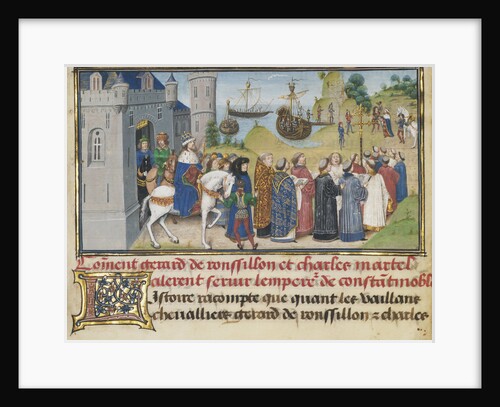 Cõment gerard de roussillon et charles martel
alerent seruir lempereʳ de constãtinoble
Listoire racompte que quant les vaillans
cheualliers gerard de roussillon & charles